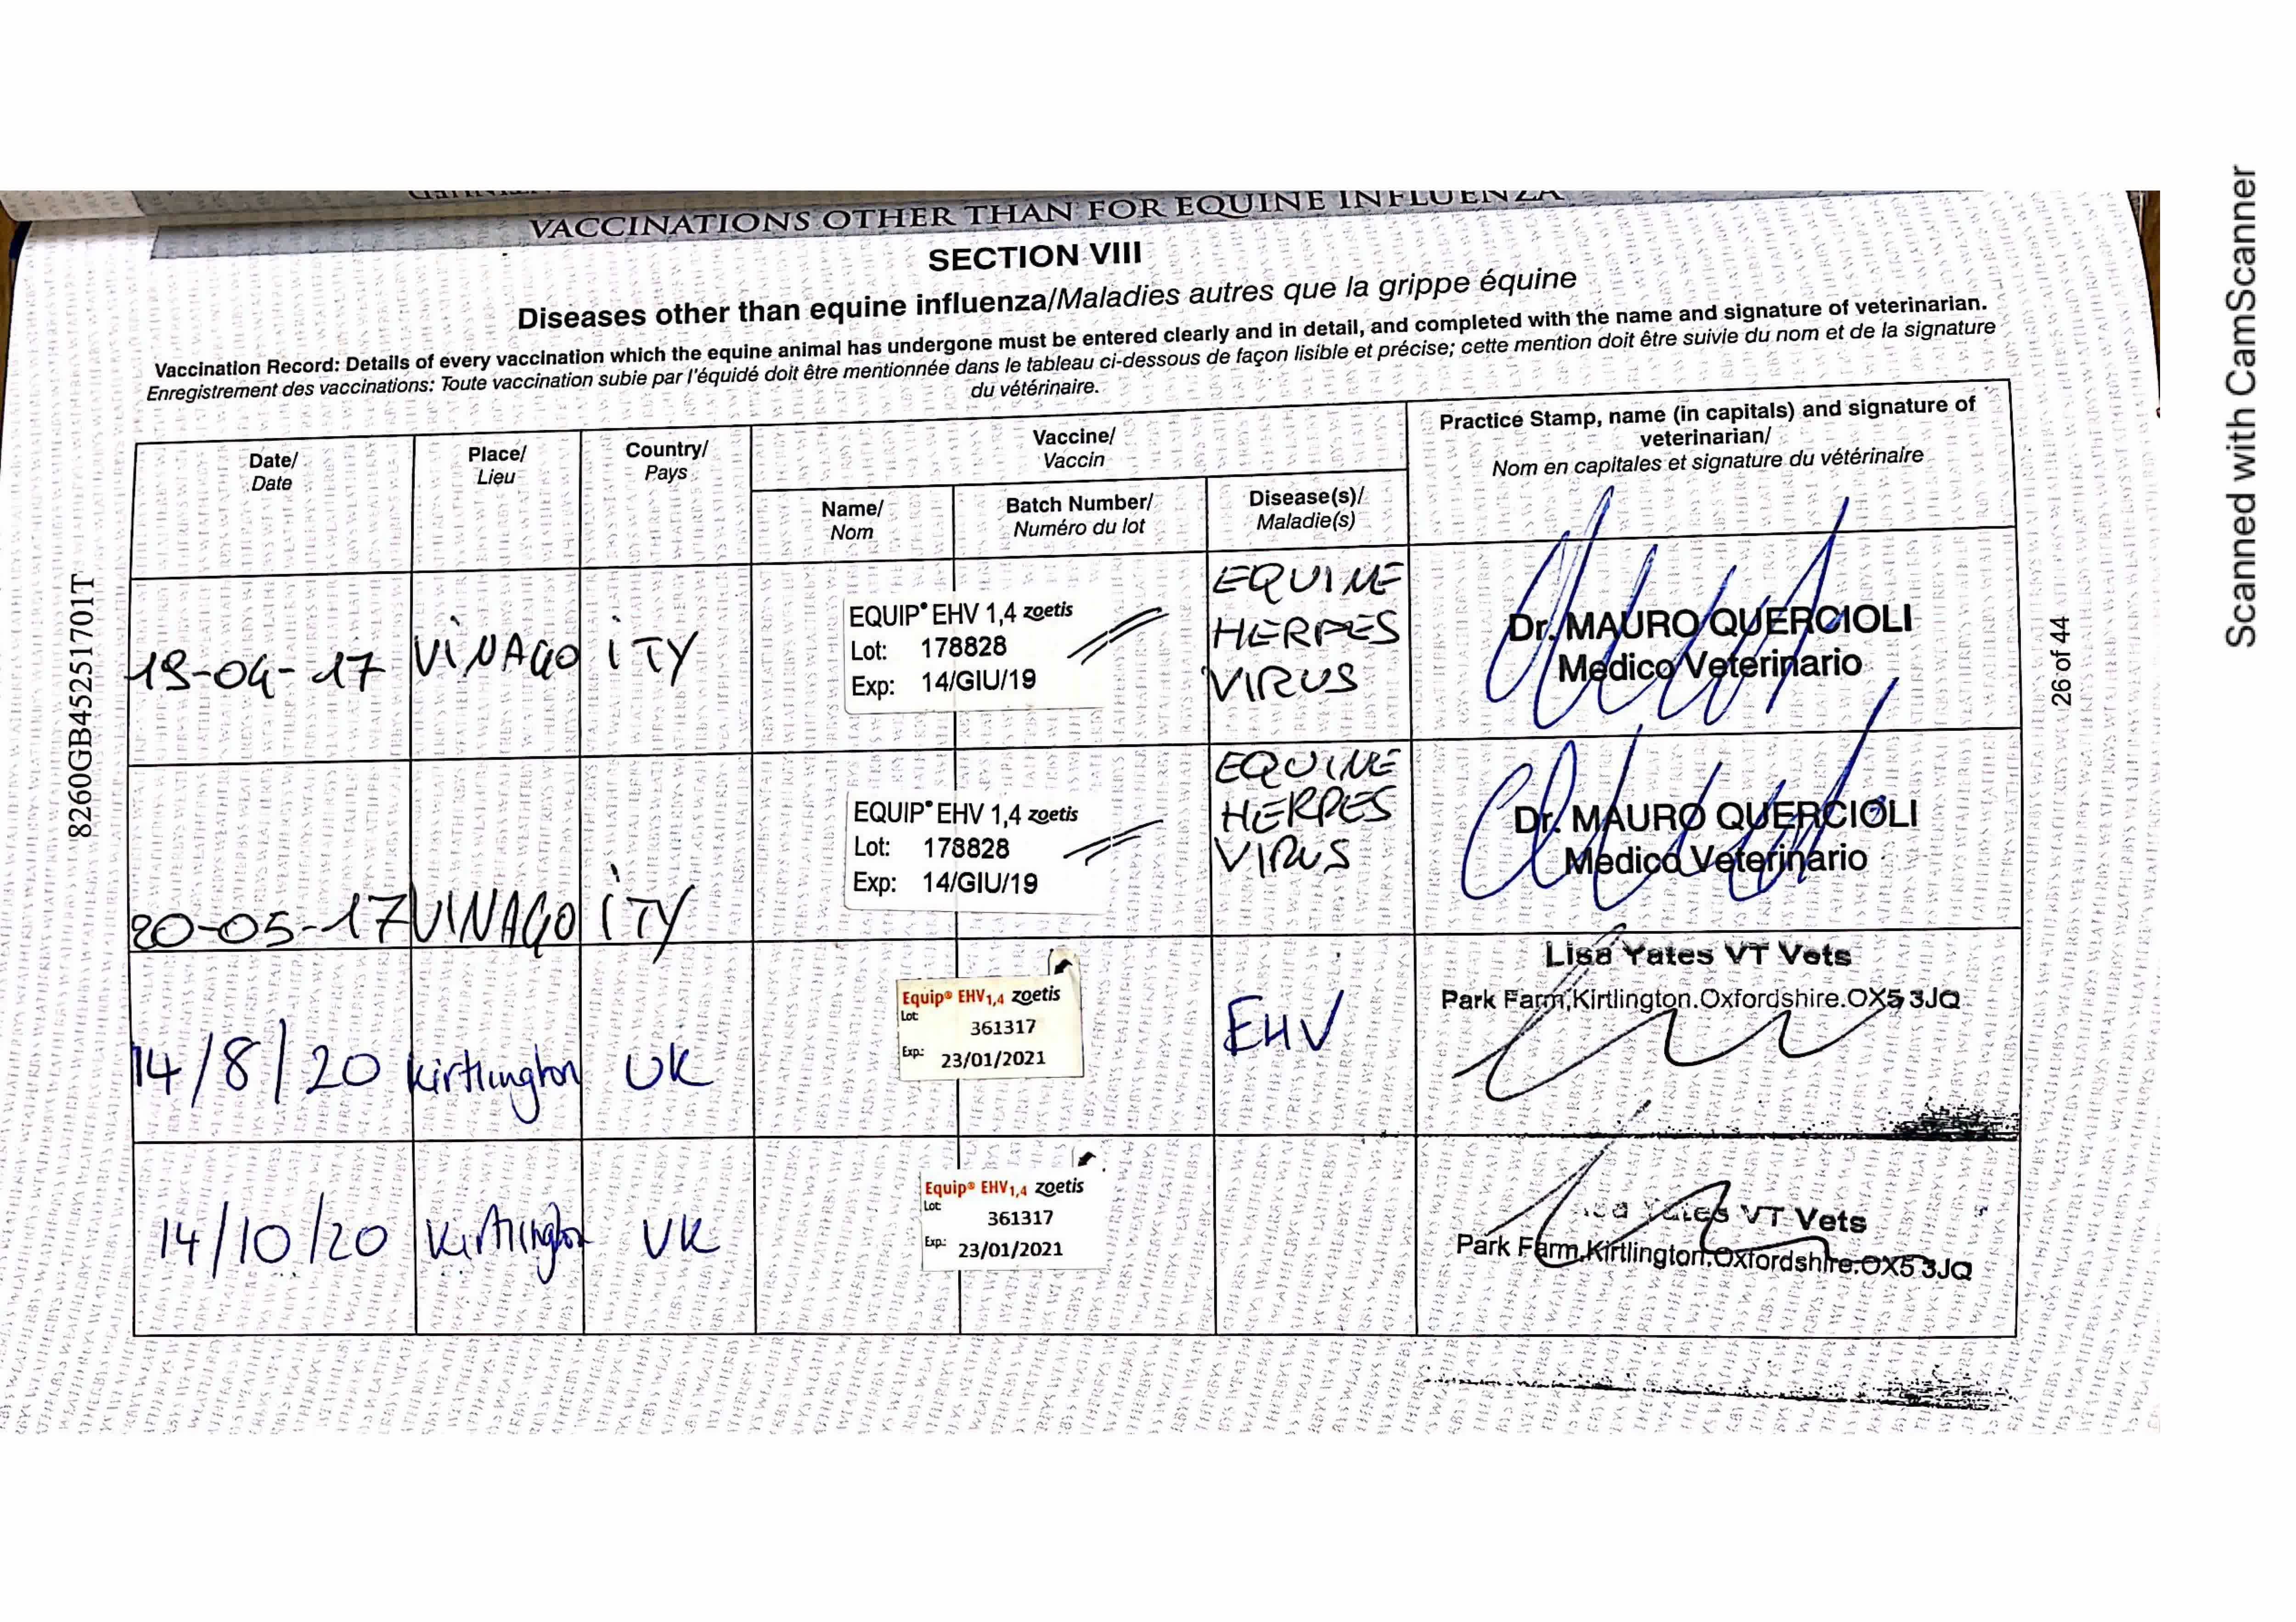 VACCINATIONS OTHER THAN FOR EQUINE INFLUENZA
SECTION VIII
Diseases other than equine influenza/Maladies autres que la grippe équine
Vaccination Record: Details of every vaccination which the equine animal has undergone must be entered clearly and in detail, and completed with the name and signature of veterinarian.
Enregistrement des vaccinations: Toute vaccination subie par l'équidé doit être mentionnée dans le tableau ci-dessous de façon lisible et précise; cette mention doit être suivie du nom et de la signature
du vétérinaire.
Date/
Date
Place/
Lieu
Country/
Pays
Vaccine/
Vaccin
Name/
Nom
Batch Number/
Numéro du lot
Disease(s)/
Maladie(s)
Practice Stamp, name (in capitals) and signature of
veterinarian/
Nom en capitales et signature du vétérinaire
19-04-17 VINAGO ITY
EQUIP® EHV 1,4 zoetis
Lot: 178828
Exp: 14/GIU/19
EQUINE
HERPES
VIRUS
Dr. MAURO QUERCIOLI
Medico Veterinario
20-05-17 VINAGO ITY
EQUIP® EHV 1,4 zoetis
Lot: 178828
Exp: 14/GIU/19
EQUINE
HERPES
VIRUS
Dr. MAURO QUERCIOLI
Medico Veterinario
14/8/20 Kirtlington UK
Equip® EHV1,4 zoetis
Lot:
361317
Exp.: 23/01/2021
EHV
Lisa Yates VT Vets
Park Farm,Kirtlington.Oxfordshire.OX5 3JQ
14/10/20 Kirtlington UK
Equip® EHV1,4 zoetis
Lot:
361317
Exp.: 23/01/2021
Lisa Yates VT Vets
Park Farm,Kirtlington.Oxfordshire.OX5 3JQ
8260GB45251701T
26 of 44
Scanned with CamScanner